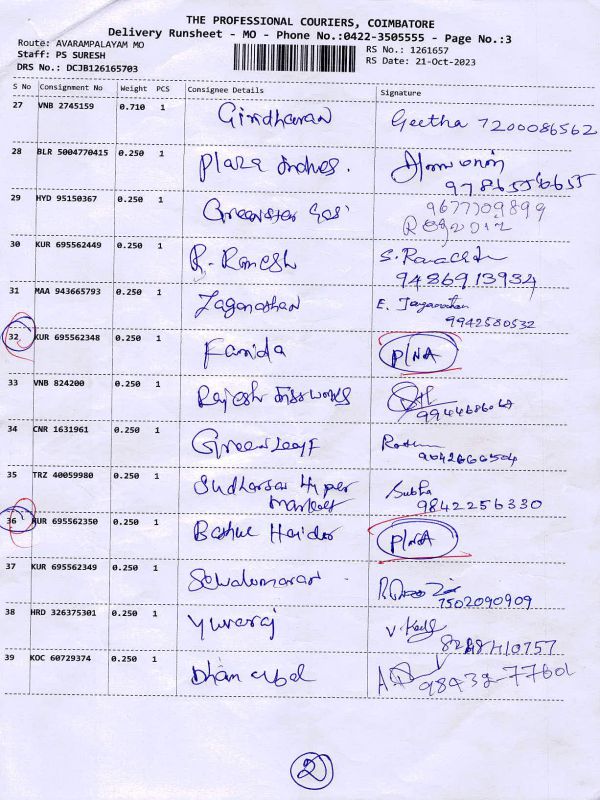 THE PROFESSIONAL COURIERS, COIMBATORE
Delivery Runsheet - MO - Phone No.:0422-3505555 - Page No.:3
Route: AVARAMPALAYAM MO
RS No.: 1261657
Staff: PS SURESH
RS Date: 21-Oct-2023
DRS No.: DCJB126165703
S No Consignment No Weight PCS Consignee Details Signature
27 VNB 2745159 0.710 1 Giridharan Geetha 7200086562
28 BLR 5004770415 0.250 1 Plaza
29 HYD 95150367 0.250 1 9677709899
30 KUR 695562449 0.250 1 R. Ramesh
9486913934
31 MAA 943665793 0.250 1 Jaganathan E. Jaganathan
9942580532
32 KUR 695562348 0.250 1 Farida P/NA
33 VNB 824200 0.250 1 Rajesh
34 CNR 1631961 0.250 1 Green Leaf
35 TRZ 40059980 0.250 1 Sudharsan Hyper Subha
Market 9842256330
36 KUR 695562350 0.250 1 Haider P/NA
37 KUR 695562349 0.250 1 Selvakumaran
7502090909
38 HRD 326375301 0.250 1 Yuvaraj
39 KOC 60729374 0.250 1 98432-77601
2